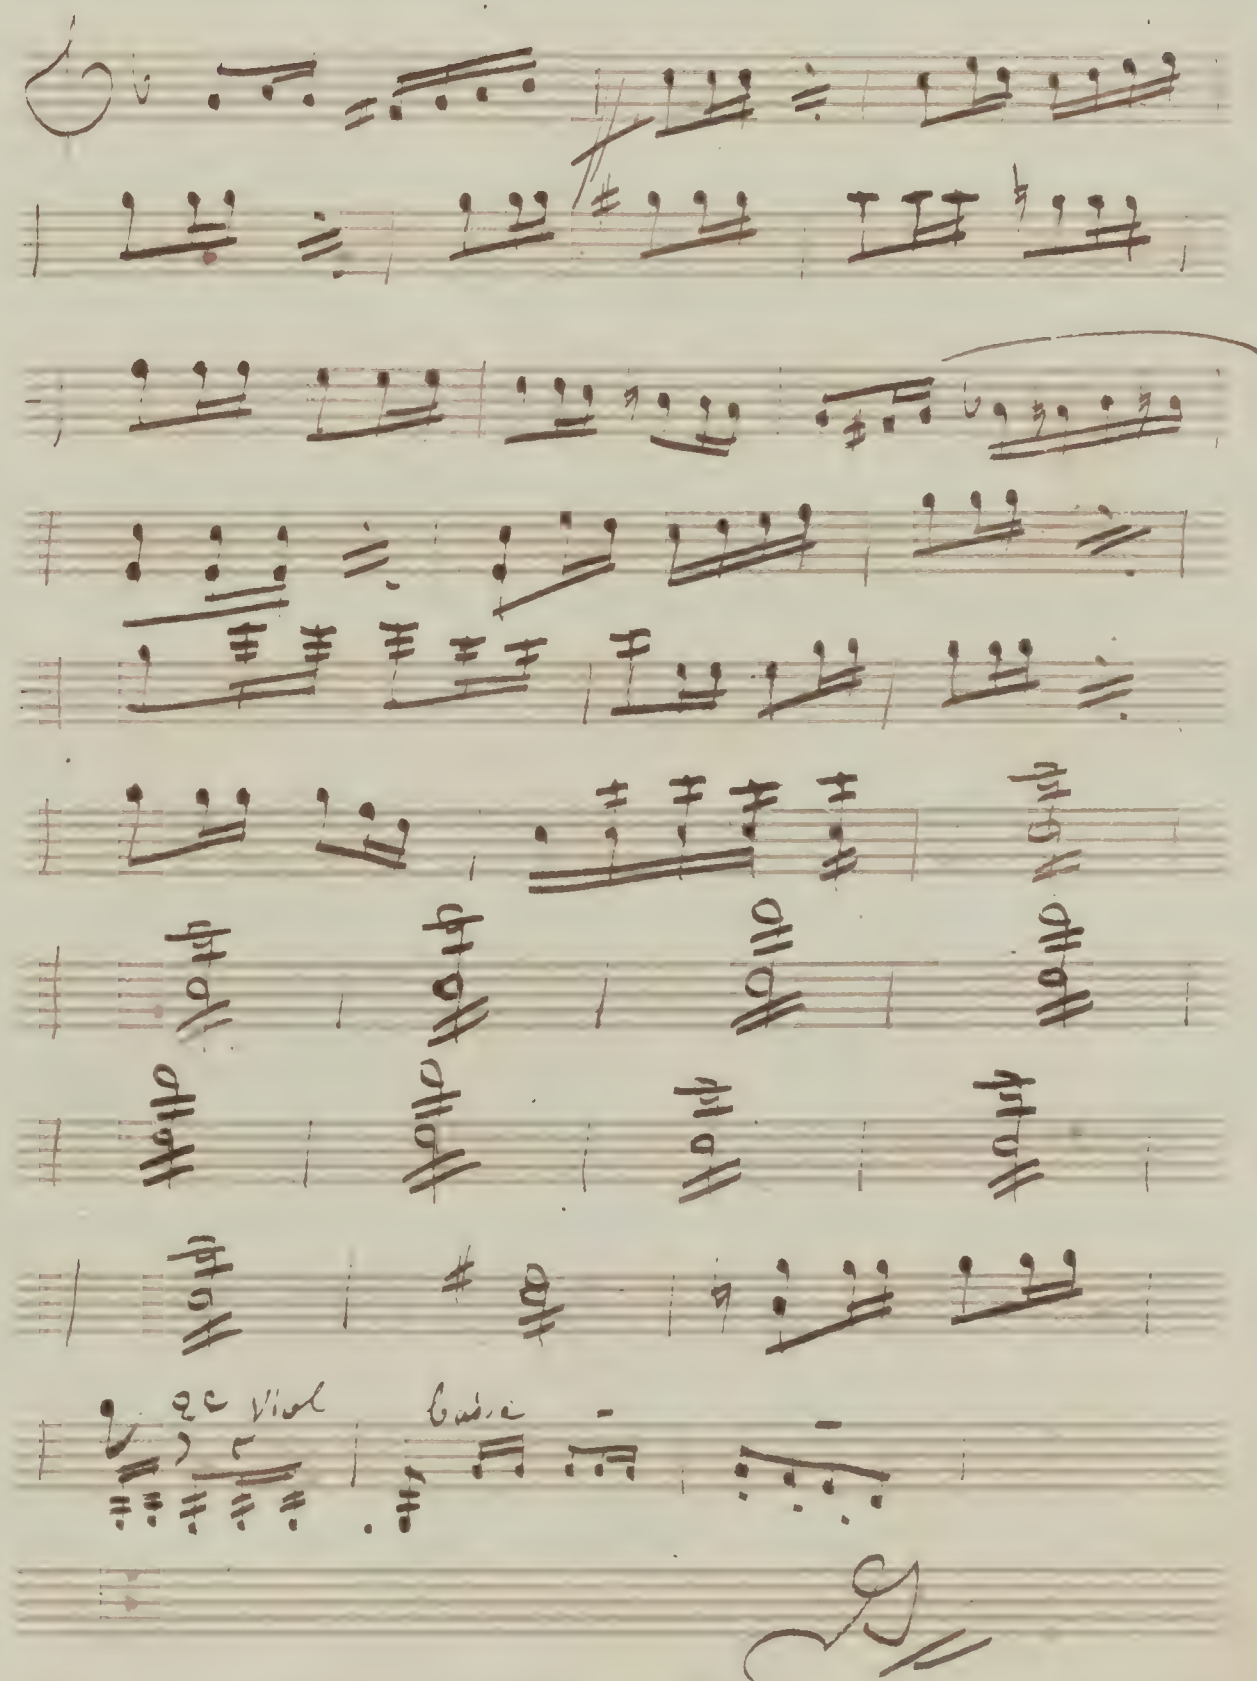 2e Viol Basse